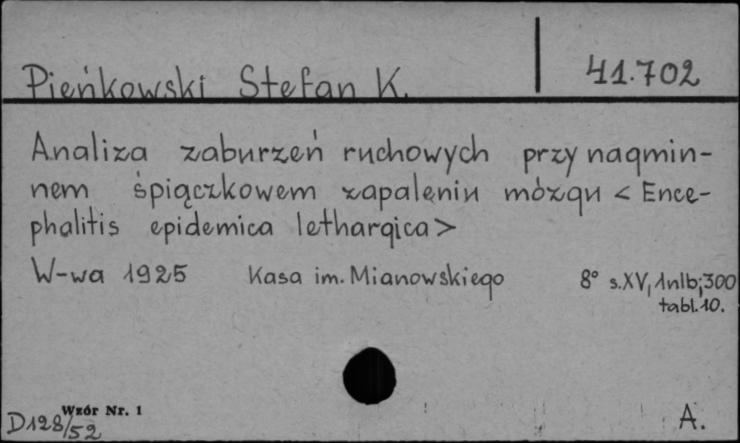 Pieńkowski Stefan K.
41.702
Analiza zaburzeń ruchowych przy nagmin-
nem śpiączkowem zapaleniu mózgu < Ence-
phalitis epidemica lethargica>
W-wa 1925 Kasa im. Mianowskiego 8° s.XV, 1nlb; 300
tabl. 10.
Wzór Nr. 1
D128/52
A.